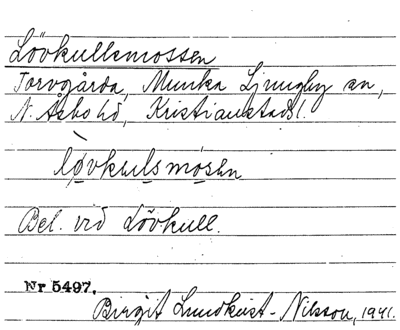 Lövkullemossen
Torvgårda, Munka Ljungby sn,
N. Åsbo hd, Kristianstads l.
lövkulsmosen
Bel. vid Lövkull.
Nr 5497.
Birgit Lundkvist-Nilsson, 1941.